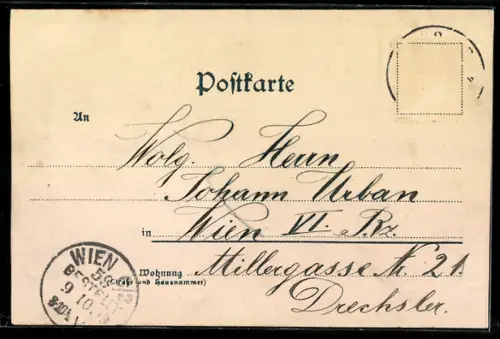 Postkarte
An
Wolg. Herrn
Johann Urban
in Wien VI. Bz.
Wohnung Millergasse N. 21.
(Straße und Hausnummer)
Drechsler.
WIEN
BESTELLT
9 10